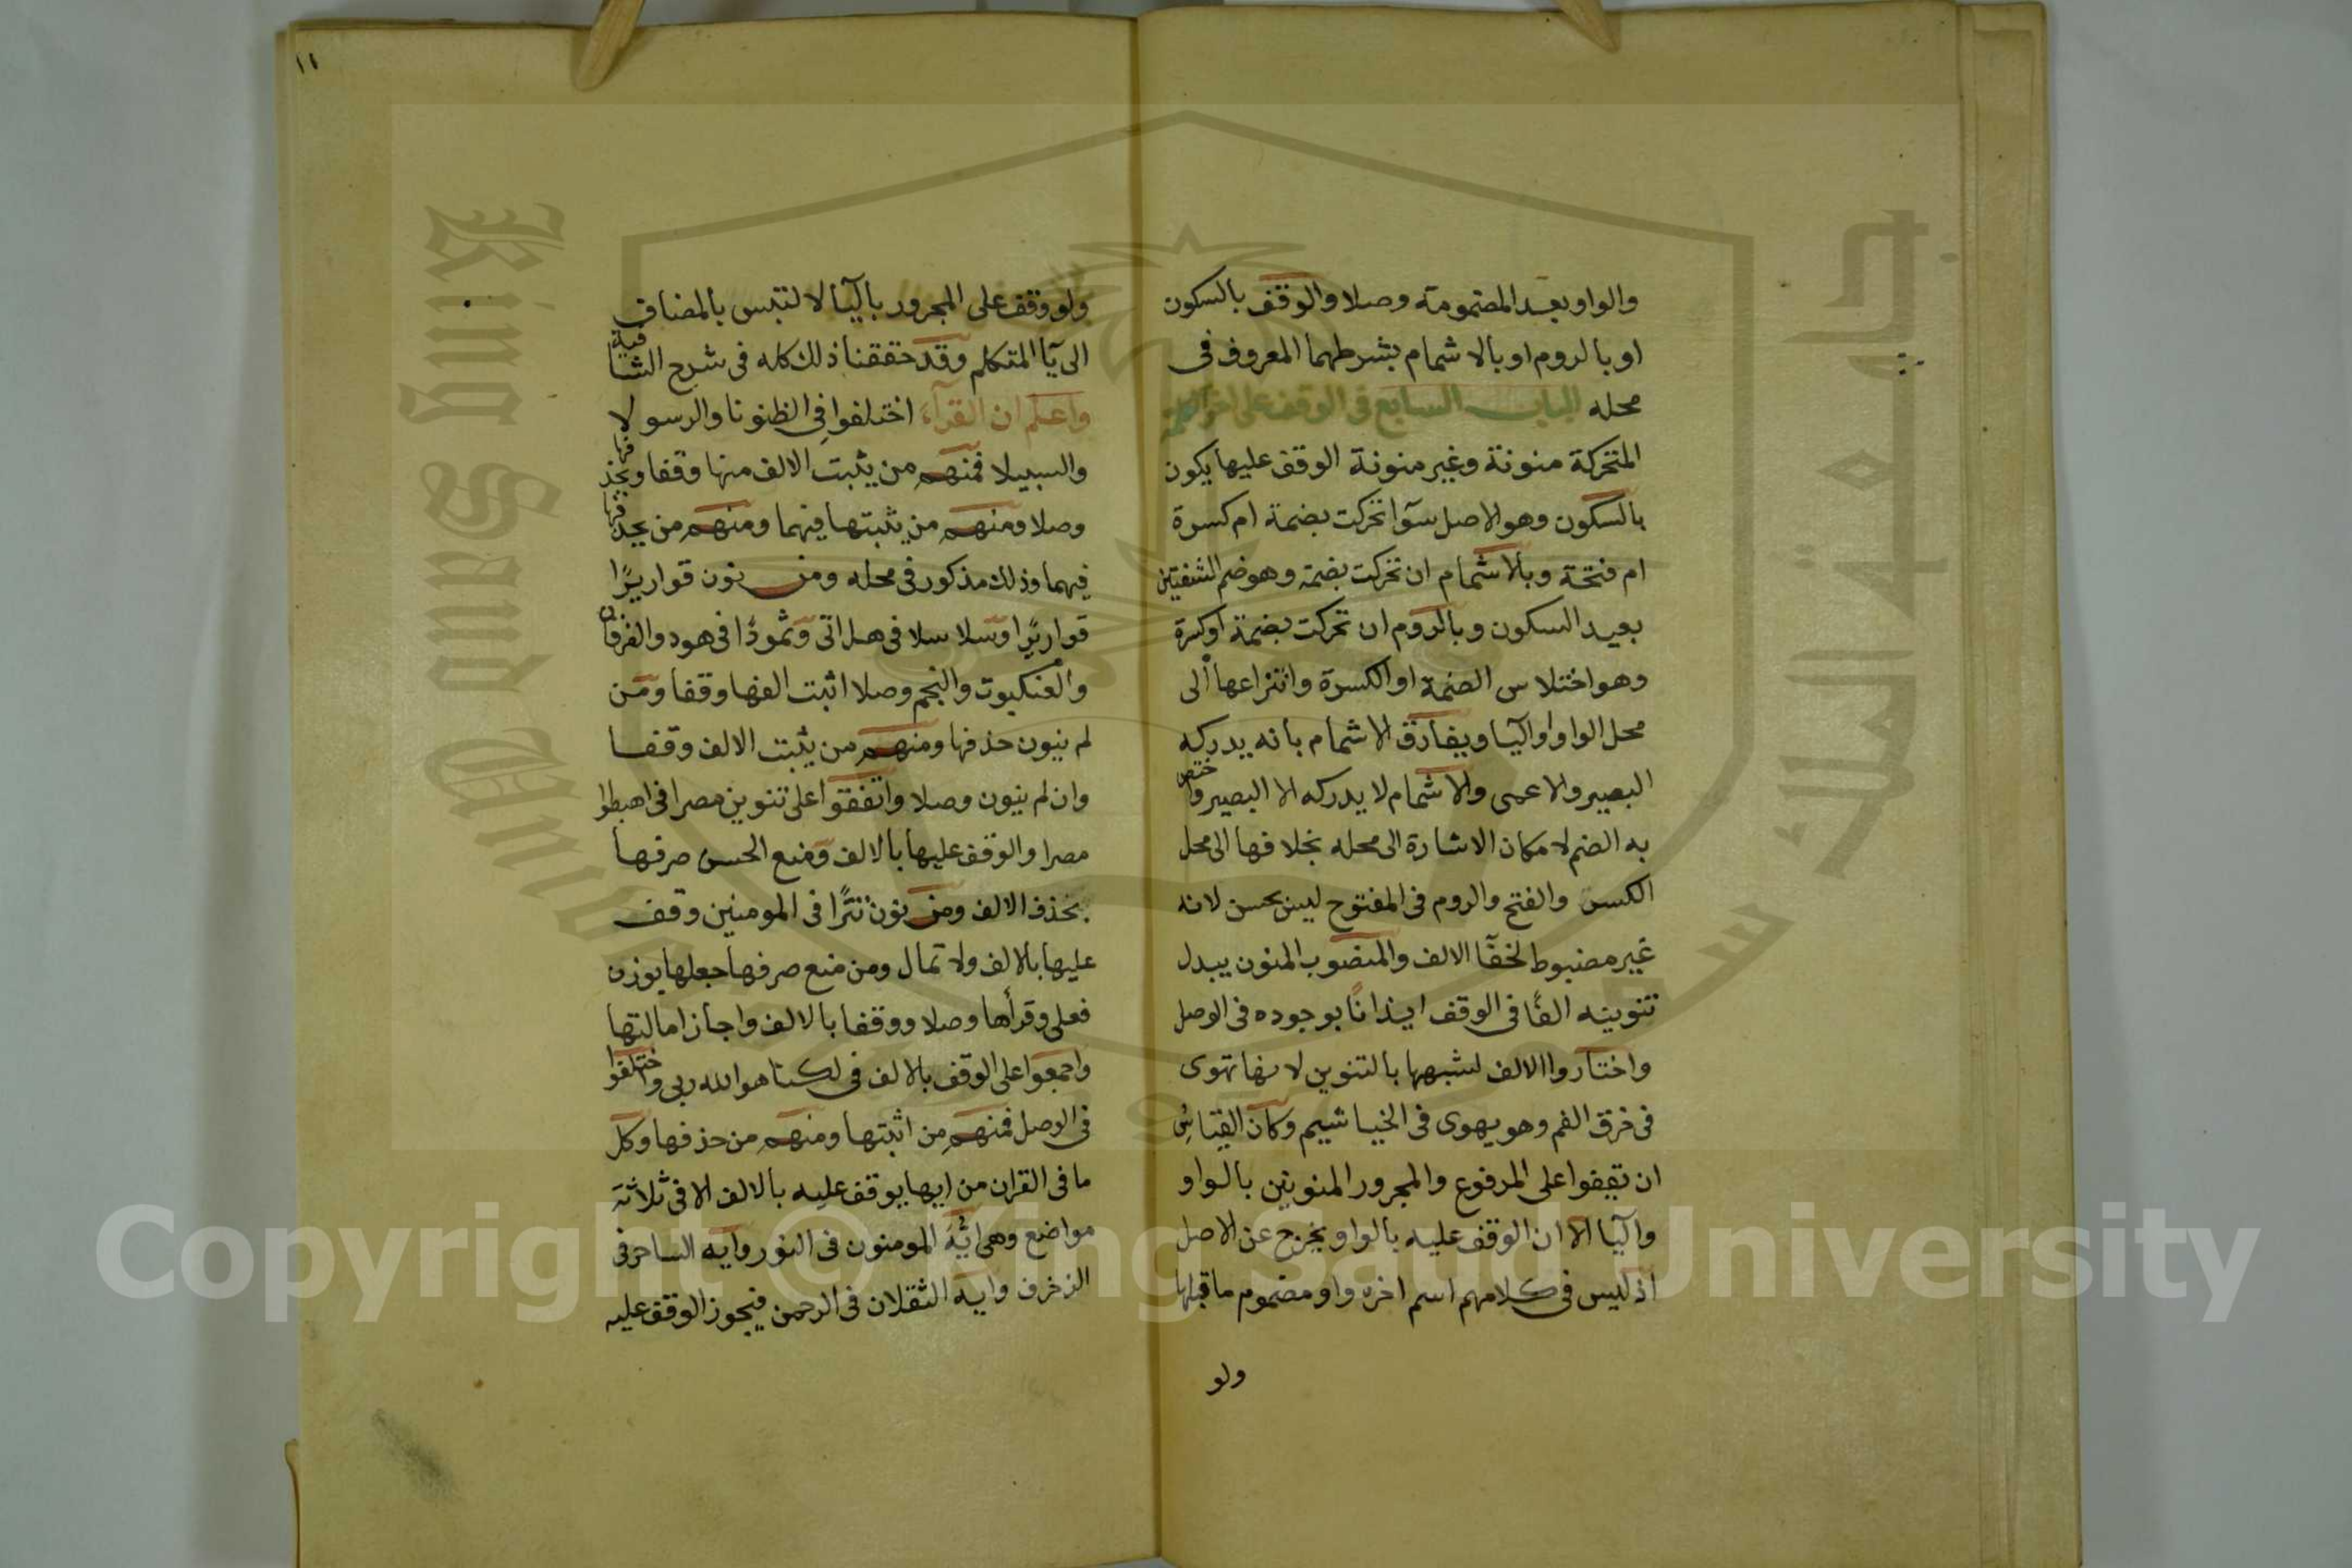 والواو بعد المضمومة وصلا والوقف بالسكون
او بالروم او بالاشمام بشرطهما المعروف فى
محله الباب السابع فى الوقف على اخر الكلمة
المتحركة منونة وغير منونة الوقف عليها يكون
بالسكون وهو الاصل سوآ تحركت بضمة ام كسرة
ام فتحة وبالاشمام ان تحركت بضمة وهو ضم الشفتين
بعيد السكون وبالروم ان تحركت بضمة او كسرة
وهو اختلاس الضمة او الكسرة وانتزاعها الى
محل الواو او اليآ ويفارق الاشمام بانه يدركه
البصير والاعمى والاشمام لا يدركه الا البصير واختص
به الضم لامكان الاشارة الى محله بخلافها الى محل
الكسر والفتح والروم فى المفتوح ليس بحسن لانه
غير مضبوط لخفآ الالف والمنصوب المنون يبدل
تنوينه الفًا فى الوقف ايذانًا بوجوده فى الوصل
واختاروا الالف لشبهها بالتنوين لانها تهوى
فى خرق الفم وهو يهوى فى الخياشيم وكان القياسُ
ان تقفوا على المرفوع والمجرور المنونين بالواو
واليآ الا ان الوقف عليه بالواو يخرج عن الاصل
اذ ليس فى كلامهم اسم اخره واو مضموم ما قبلها
ولو
١١
ولو وقف على المجرور باليآ لالتبس بالمضاف
الى يآ المتكلم وقد حققنا ذلك كله فى شرح الشافية
واعلم ان القرآء اختلفوا فى الظنونا والرسولا
والسبيلا فمنهم من يثبت الالف منها وقفا ويحذفها
وصلا ومنهم من يثبتها فيهما ومنهم من يحذفها
فيهما وذلك مذكور فى محله ومن نون قواريرًا
قواريرًا وسلاسلا فى هل اتى وثمودًا فى هود والفرقان
والعنكبوت والنجم وصلا اثبت الفها وقفا ومن
لم ينون حذفها ومنهم من يثبت الالف وقفا
وان لم ينون وصلا واتفقوا على تنوين مصرا فى اهبطوا
مصرا والوقف عليها بالالف ومنع الحسن صرفها
بحذف الالف ومن نون تترًا فى المومنين وقف
عليها بالالف ولا تمال ومن منع صرفها جعلها بوزن
فعلى وقرأها وصلا ووقفا بالالف واجاز امالتها
واجمعوا على الوقف بالالف فى لكنا هو الله ربى واختلفوا
فى الوصل فمنهم من اثبتها ومنهم من حذفها وكل
ما فى القران من ايها يوقف عليه بالالف الا فى ثلاثة
مواضع وهى ايُّهَ المومنون فى النور وايه الساحر فى
الزخرف وايه الثقلان فى الرحمن فيجوز الوقف عليه
Copyright © King Saud University